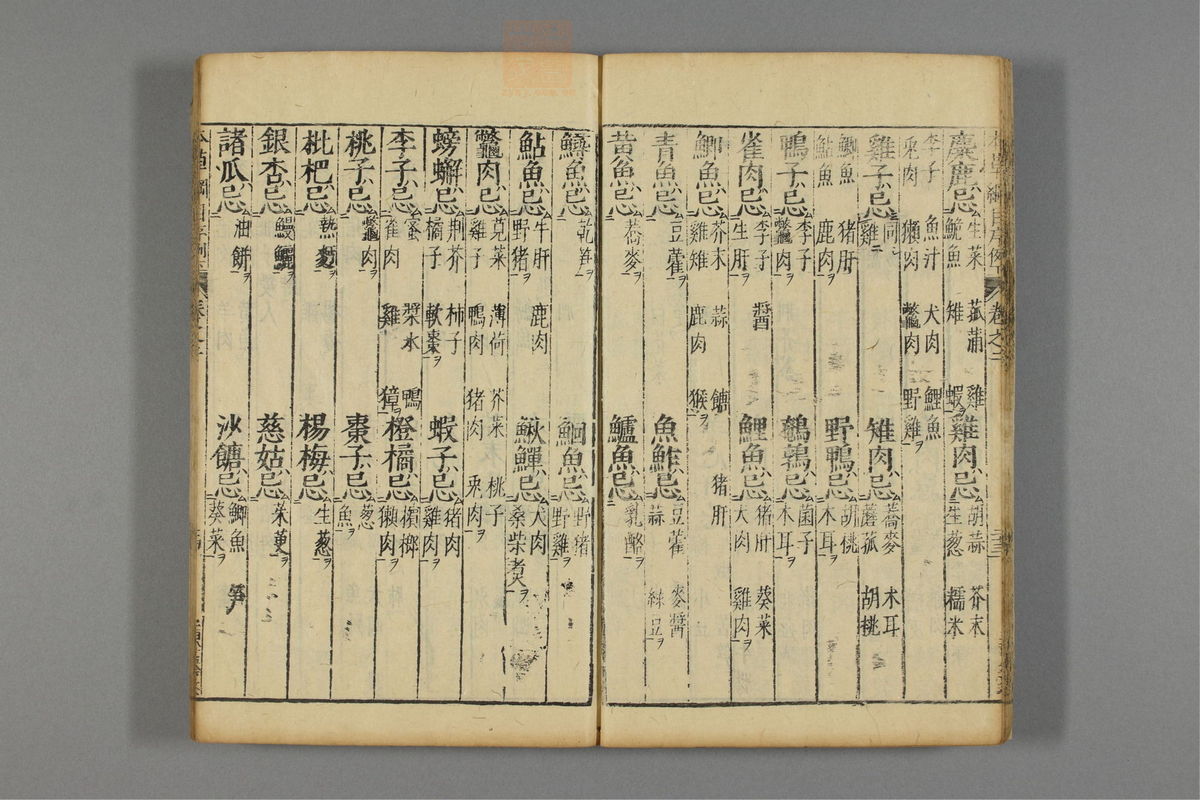 麋鹿忌 生菜 菰蒲 雞 鮠魚 雉 蝦 雞肉忌 胡蒜 芥末 生葱 糯米
李子 魚汁 犬肉 鯉魚 兎肉 獺肉 鱉肉 野雞
雞子忌 同雞 雉肉忌 蕎麥 木耳 蘑菰 胡桃
鯽魚 猪肝 鮎魚 鹿肉 野鴨忌 胡桃 木耳
鴨子忌 李子 鱉肉 鵪鶉忌 菌子 木耳
雀肉忌 李子 醬 生肝 鯉魚忌 猪肝 葵菜 犬肉 雞肉
鯽魚忌 芥末 蒜 餹 猪肝 雞雉 鹿肉 猴
青魚忌 豆藿 魚鮓忌 豆藿 麥醬 蒜 綠豆
黃魚忌 蕎麥 鱸魚忌 乳酪
鱘魚忌 乾笋 鮰魚忌 野猪 野雞
鮎魚忌 牛肝 鹿肉 野猪 鰍鱓忌 犬肉 桑柴煮
鱉肉忌 莧菜 薄荷 芥菜 桃子 雞子 鴨肉 猪肉 兎肉
螃蠏忌 荆芥 柿子 橘子 軟棗 蝦子忌 猪肉 雞肉
李子忌 蜜 漿水 鴨 雀肉 雞 獐 橙橘忌 檳榔 獺肉
桃子忌 鱉肉 棗子忌 葱 魚
枇杷忌 熱麪 楊梅忌 生葱
銀杏忌 鰻鱺 慈姑忌 茱萸
諸瓜忌 油餅 沙餹忌 鯽魚 笋 葵菜